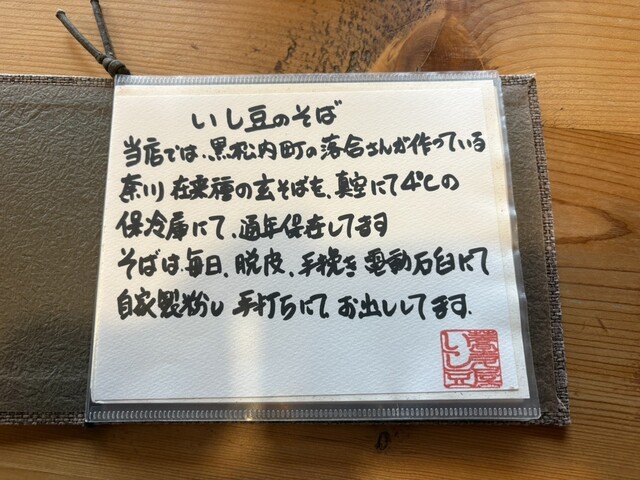 いし豆のそば
当店では、黒松内町の落合さんが作っている
奈川在来種の玄そばを、真空にて4℃の
保冷庫にて、通年保存してます
そばは毎日、脱皮、手挽き電動石臼にて
自家製粉し手打ちにてお出ししてます。
いし豆